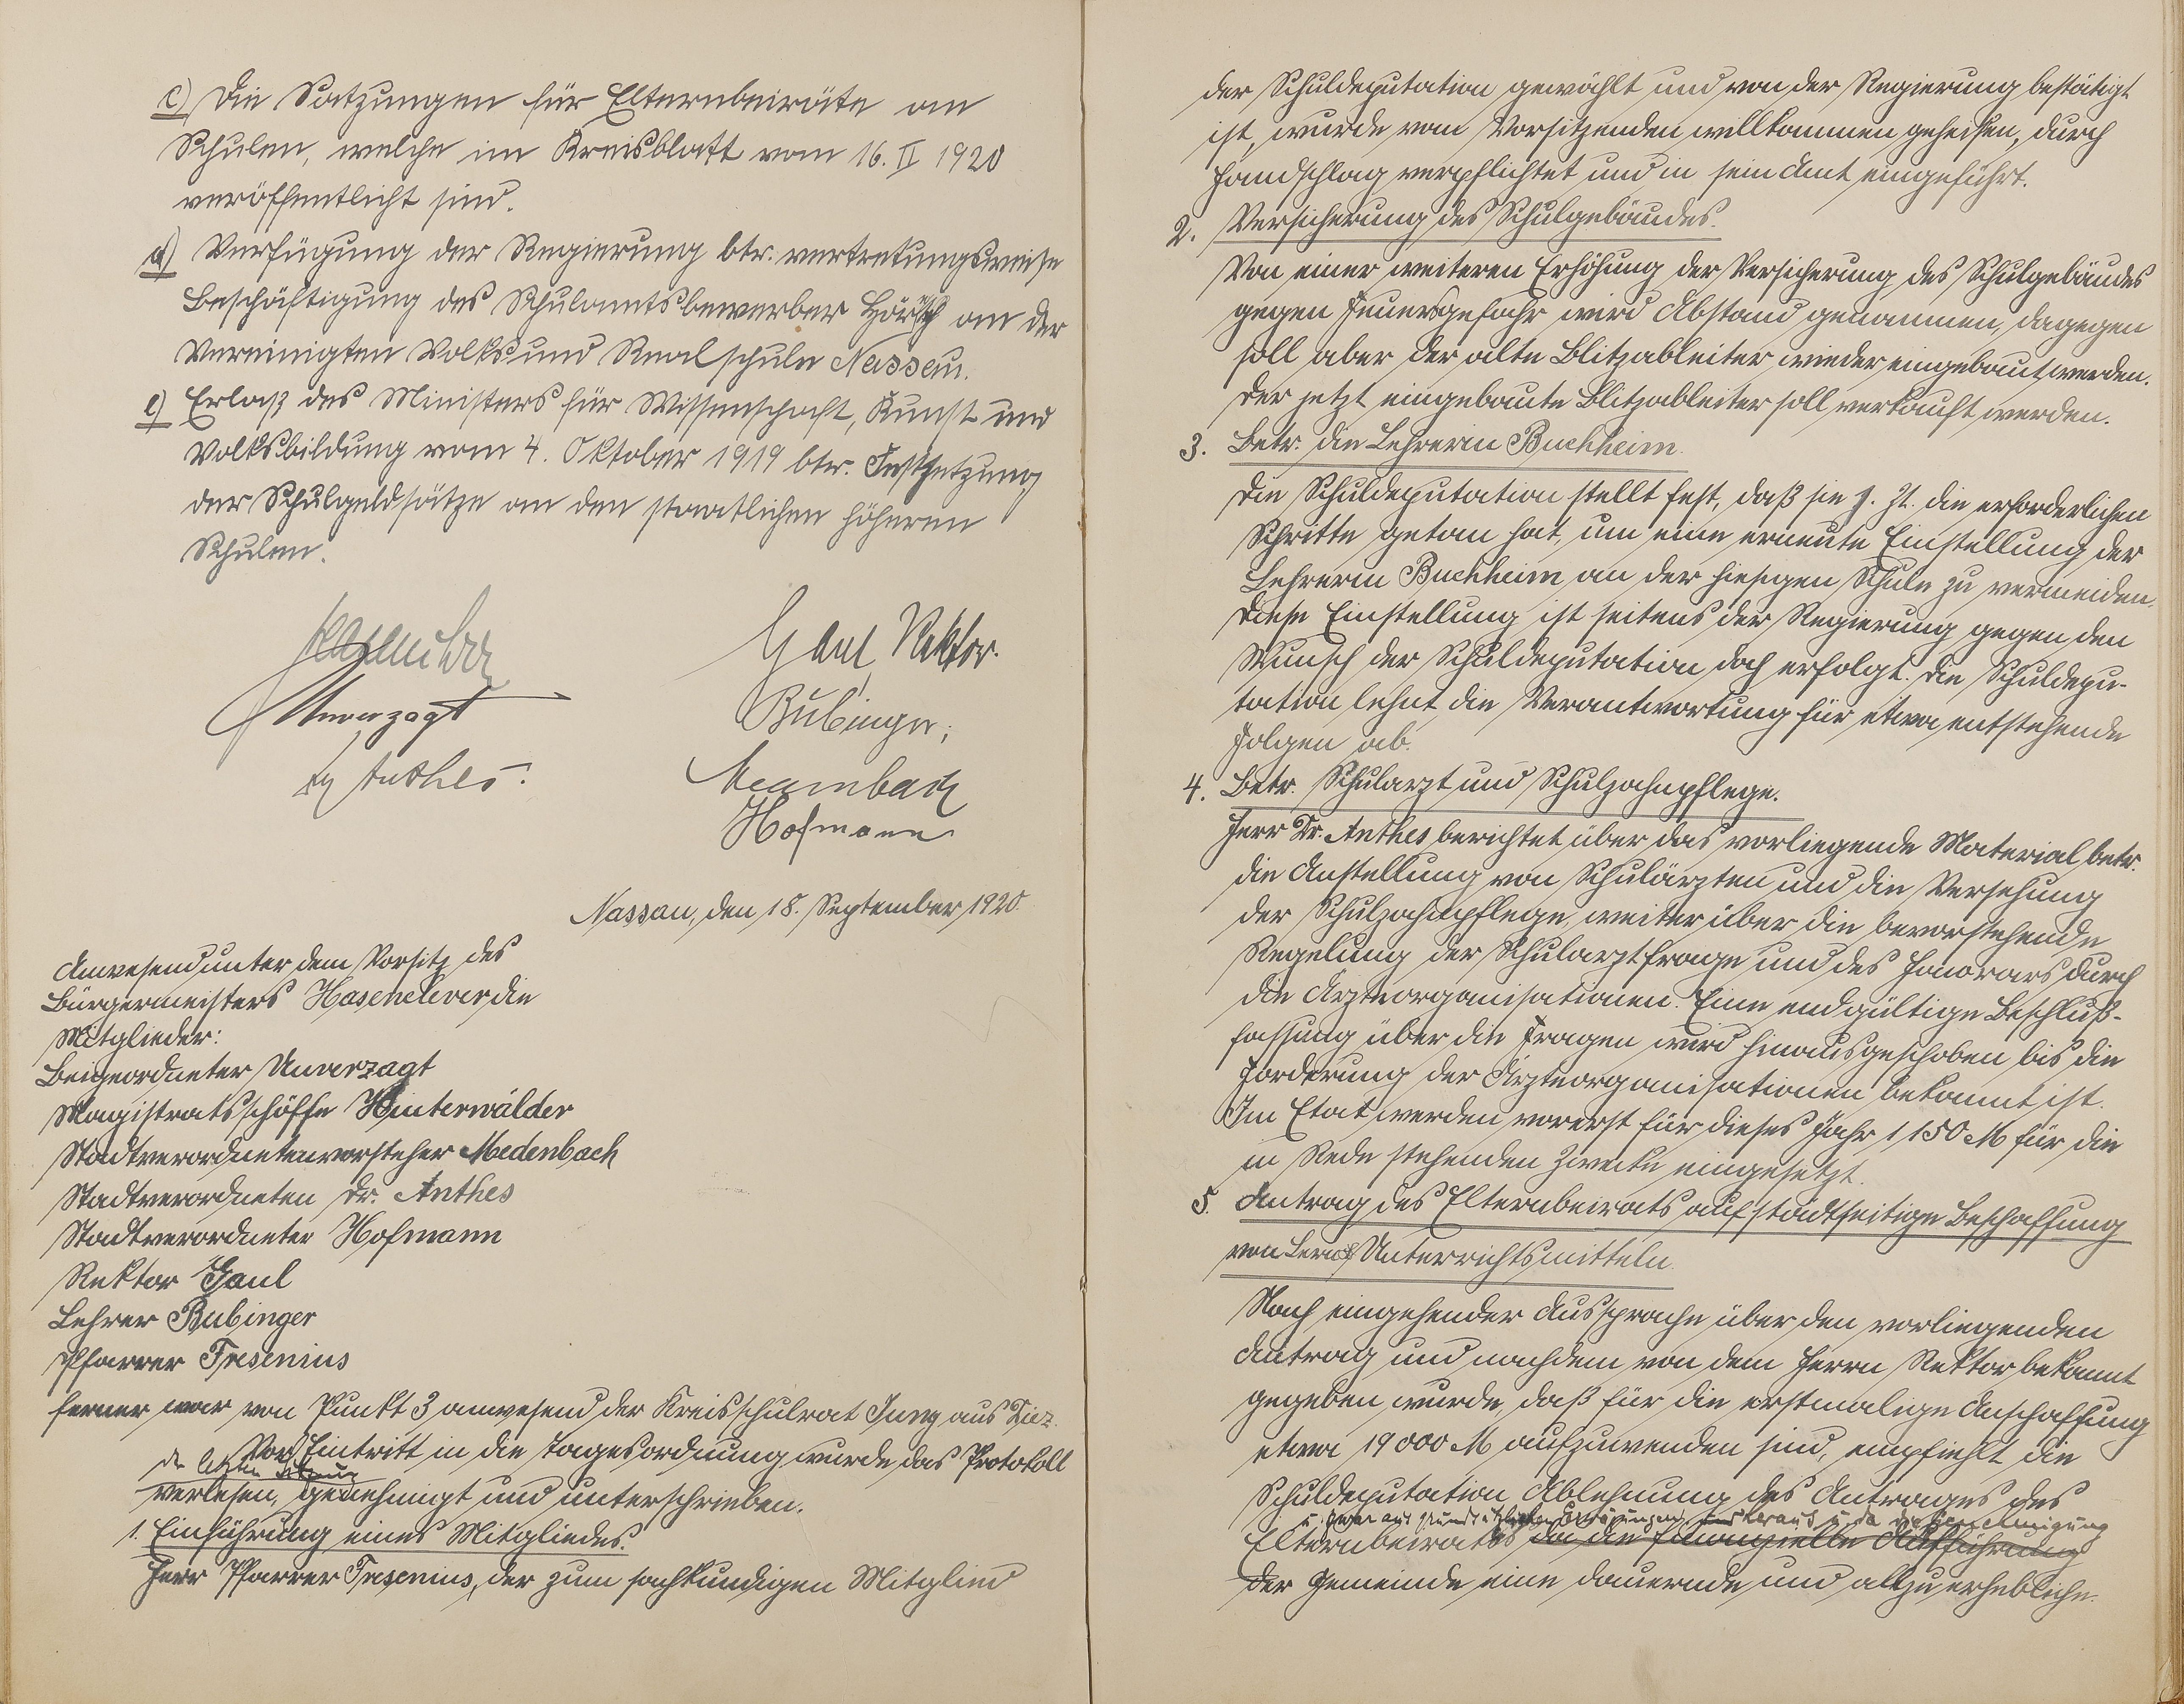 c) Die Satzungen für Elternbeiräte an
Schulen, welche im Kreisblatt vom 16. II 1920
veröffentlicht sind.
d) Verfügung der Regierung btr. vertretungsweise
Beschäftigung des Schulamtsbewerber Hörsch an der
Vereinigten Volks und Realschule Nassau.
e) Erlaß des Ministers für Wissenschaft, Kunst und
Volksbildung vom 4. Oktober 1919 btr. Festsetzung
der Schulgeldsätze an den staatlichen höheren
Schulen.
Hasenclever
Gaul, Rektor.
Unverzagt
Bubinger,
Dr Anthes.
Medenbach
Hofmann
Nassau, den 18. September 1920.
Anwesend unter dem Vorsitz des
Bürgermeisters Hasenclever die
Mitglieder:
Beigeordneter Unverzagt
Magistratsschöffe Hinterwälder
Stadtverordnetenvorsteher Medenbach
Stadtverordneten Dr. Anthes
Stadtverordneter Hofmann
Rektor Gaul
Lehrer Bubinger
Pfarrer Fresenius
ferner war von Punkt 3 anwesend der Kreisschulrat Jung aus Diez.
Vor Eintritt in die Tagesordnung wurde das Protokoll
der letzten Sitzung
verlesen, genehmigt und unterschrieben.
1. Einführung eines Mitgliedes.
Herr Pfarrer Fresenius, der zum sachkundigen Mitglied
der Schuldeputation gewählt und von der Regierung bestätigt
ist, wurde vom Vorsitzenden willkommen geheißen, durch
Handschlag verpflichtet und in sein Amt eingeführt.
2. Versicherung des Schulgebäudes.
Von einer weiteren Erhöhung der Versicherung des Schulgebäudes
gegen Feuersgefahr wird Abstand genommen, dagegen
soll aber der alte Blitzableiter wieder eingebaut werden.
Der jetzt eingebaute Blitzableiter soll verkauft werden.
3. Betr. die Lehrerin Buchheim.
Die Schuldeputation stellt fest, daß sie z. Zt. die erforderlichen
Schritte getan hat, um eine erneute Einstellung der
Lehrerin Buchheim an der hiesigen Schule zu vermeiden.
Diese Einstellung ist seitens der Regierung gegen den
Wunsch der Schuldeputation doch erfolgt. Die Schuldepu-
tation lehnt die Verantwortung für etwa entstehende
Folgen ab.
4. Betr. Schularzt und Schulzahnpflege.
Herr Dr. Anthes berichtet über das vorliegende Material betr.
die Anstellung von Schulärzten und die Versehung
der Schulzahnpflege, weiter über die bevorstehende
Regelung der Schularztfrage und des Honorars durch
die Ärzteorganisationen. Eine endgültige Beschluß-
fassung über die Fragen wird hinausgeschoben bis die
Forderung der Ärzteorganisationen bekannt ist.
Im Etat werden vorerst für dieses Jahr 1150 M für die
in Rede stehenden Zwecke eingesetzt.
5. Antrag des Elternbeirats auf stadtseitige Beschaffung
von Lern & Unterrichtsmitteln.
Nach eingehender Aussprache über den vorliegenden
Antrag und nachdem von dem Herrn Rektor bekannt
gegeben wurde, daß für die erstmalige Anschaffung
etwa 19000 M aufzuwenden sind, empfiehlt die
Schuldeputation Ablehnung des Antrages des
u. zwar aus grundsätzlichen Erwägungen heraus u. da die Genehmigung
Elternbeirates da die finanzielle Ausführung
der Gemeinde eine dauernde und allzu erhebliche